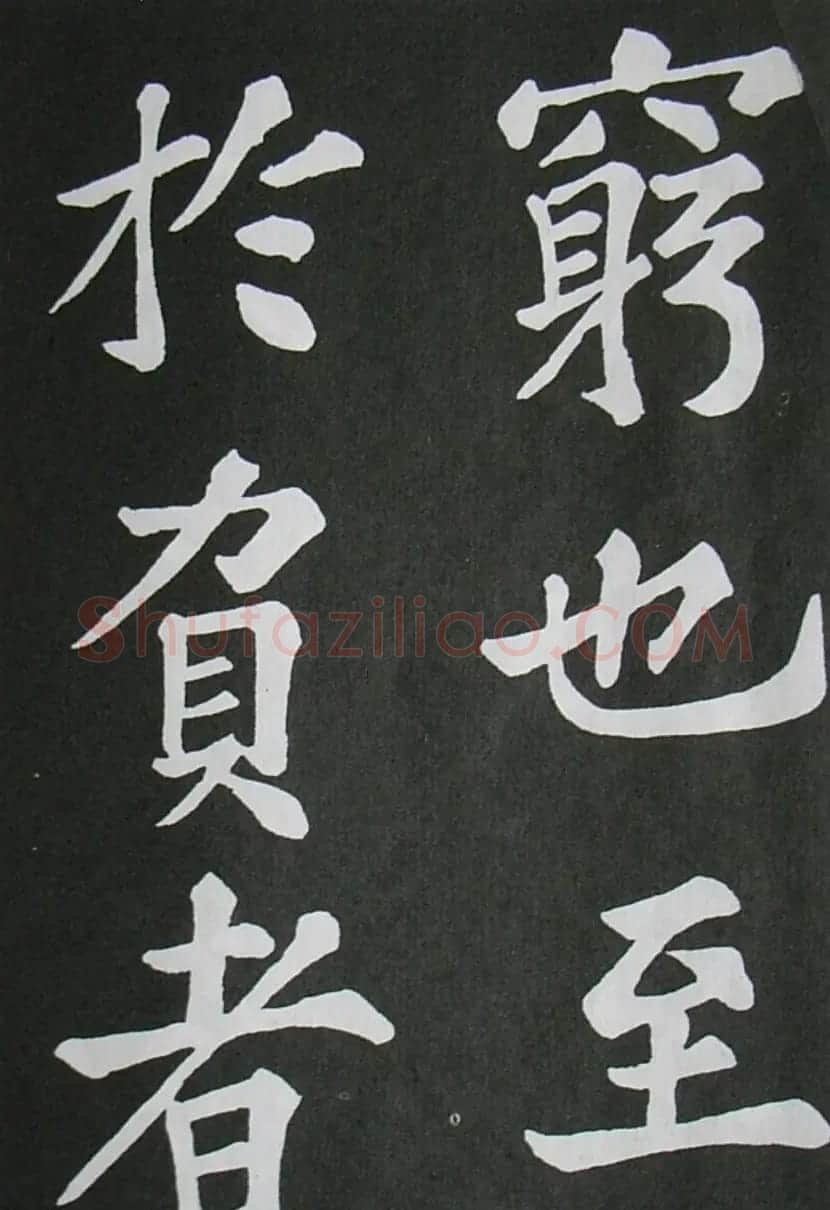 窮也至
於負者
Shufaziliao.COM